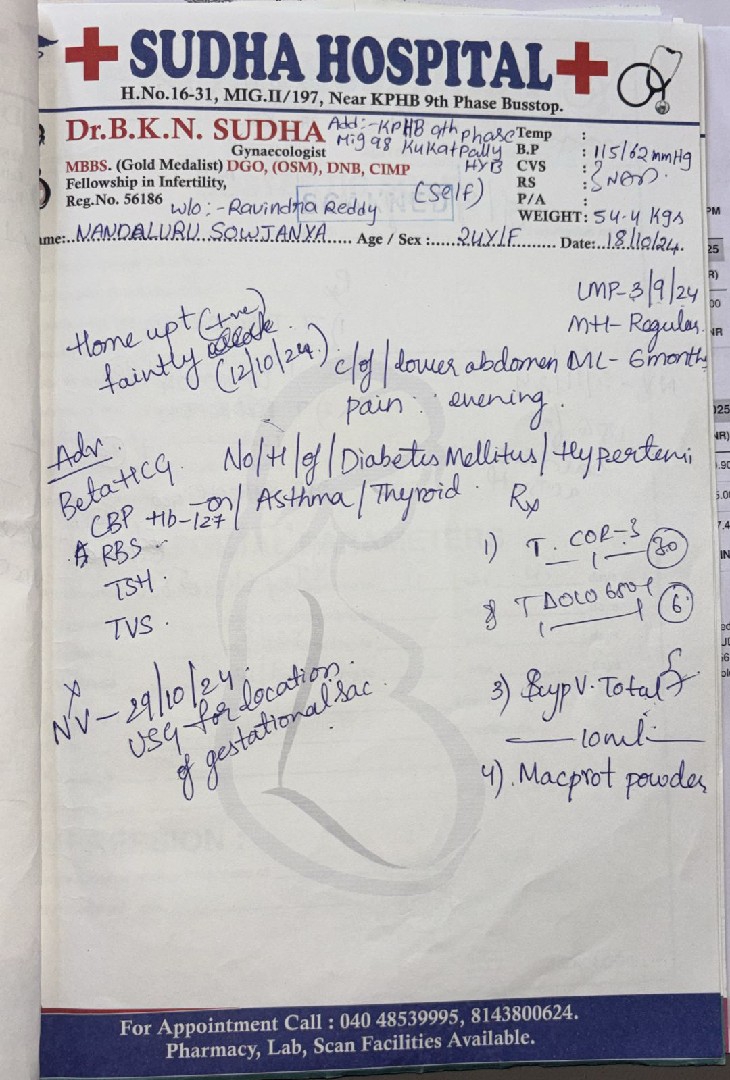 SUDHA HOSPITAL
H.No.16-31, MIG.II/197, Near KPHB 9th Phase Busstop.
Dr.B.K.N. SUDHA
Gynaecologist
MBBS. (Gold Medalist) DGO, (OSM), DNB, CIMP
Fellowship in Infertility,
Reg.No. 56186
Add:-KPHB 9th phase
Mig 98 Kukatpally
HYB
(Self)
W/o :- Ravindra Reddy
Temp :
B.P : 115/62 mmHg
CVS :
RS : NAD
P/A :
WEIGHT: 54.4 Kgs
ame:..NANDALURU SOWJANYA..... Age / Sex :.....24Y/F......... Date:..18/10/24.
LMP-3/9/24
MH- Regular.
ML- 6month
Home upt (+ve)
faintly
(12/10/24)
c/of/lower abdomen
pain evening.
Adv.
Beta HCG.
CBP Hb-127
RBS
TSH.
TVS.
No/H/of/Diabetes Mellitus/Hypertensi
on/Asthma/Thyroid.
Rx
1) T. COR-3 30
T DOLO 650 6
3) Syp V. Total
10ml
4). Macprot powder
NV-29/10/24.
USG for location
of gestational sac
For Appointment Call : 040 48539995, 8143800624.
Pharmacy, Lab, Scan Facilities Available.